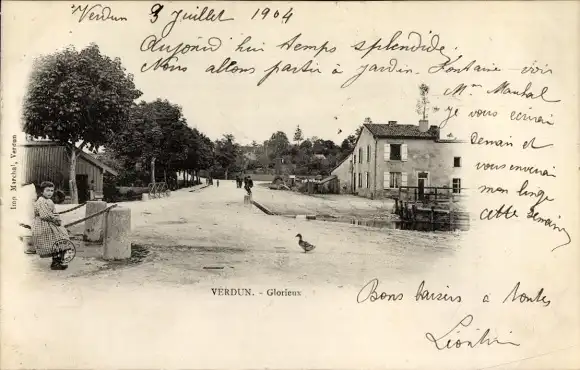 Verdun 3 Juillet 1904
Aujourd'hui temps splendide.
Nous allons partir à jardin. Fontaine voir
Mme
je vous écrirai
demain et
vous enverrai
mon linge
cette semaine
Imp. Marchal, Verdun
VERDUN. - Glorieux
Bons baisers à toutes
Léontine